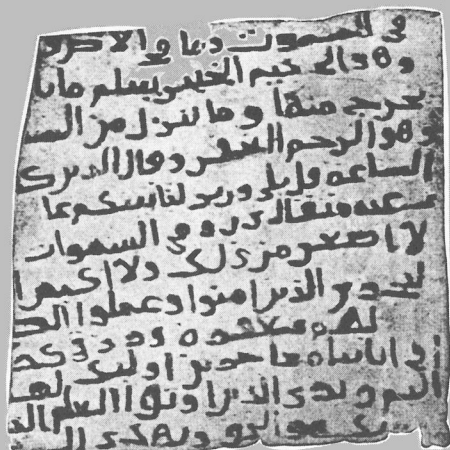 في السموت وما في الارض
وهو الحكيم الخبير يعلم ما يلج
يخرج منها وما ينزل من السما
وهو الرحيم الغفور وقال الذين ك
الساعه قل بلى وربى لتاتينكم عا
عنه مثقال ذره في السموات
لا اصغر من ذلك ولا اكبر ا
ليجزى الذين امنوا وعملوا الص
لهم مغفره ورزق كر
فى اياتنا معاجزين اوليك لهم
اليم ويرى الذين اوتوا العلم الذ
ربك هو الحق ويهدى الى